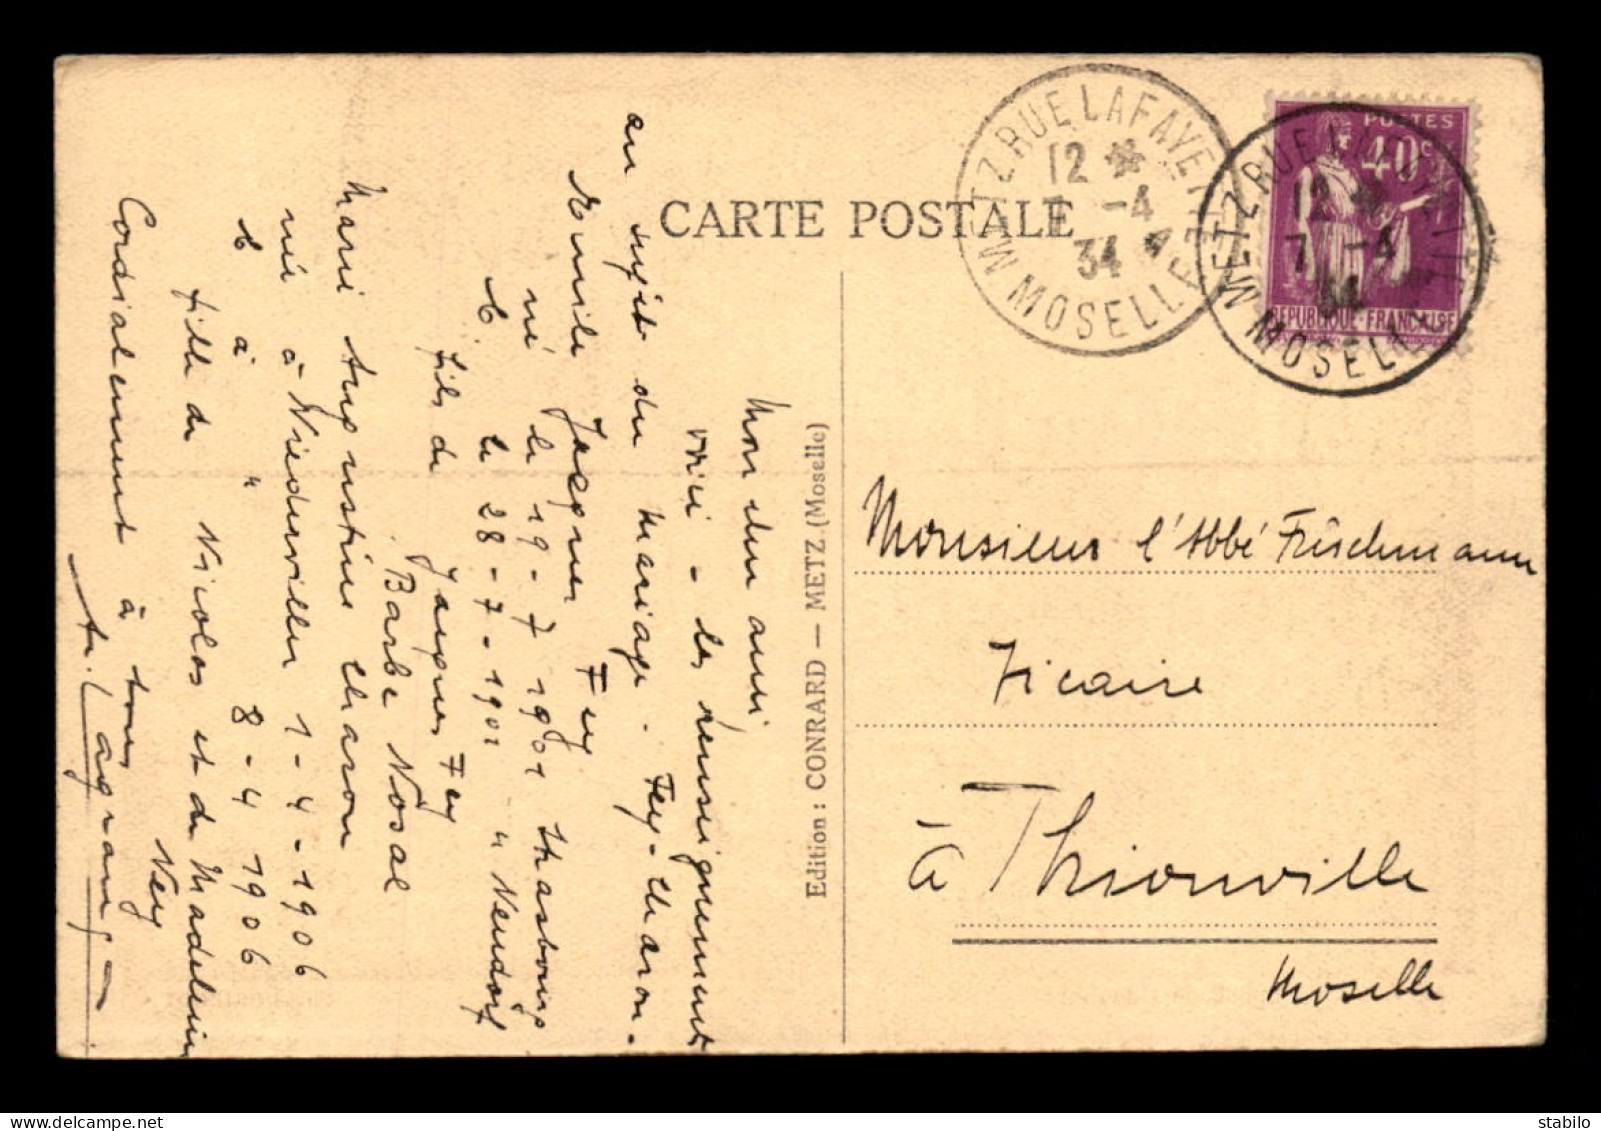 CARTE POSTALE
METZ RUE LAFAYETTE
12 *
7 -4
34
MOSELLE
METZ RUE LAFAYETTE
12 *
7 -4
34
MOSELLE
POSTES
40c
REPUBLIQUE FRANÇAISE
Edition : CONRARD — METZ (Moselle)
Monsieur l'Abbé Frischmann
Vicaire
à Thionville
Moselle
Mon cher ami
voici - les renseignements
au sujet du mariage. Fey-Charon.
Emile Jacques Fey
né le 19-7 1901 Strasbourg
b. le 28-7-1901 " Neudorf
fils de Jacques Fey
Barbe Nosal
Marie Augustine Charon
née à Niedervillers 1-4-1906
b à " 8-4 1906
fille de Nicolas et de Madeleine
Very
Cordialement à vous